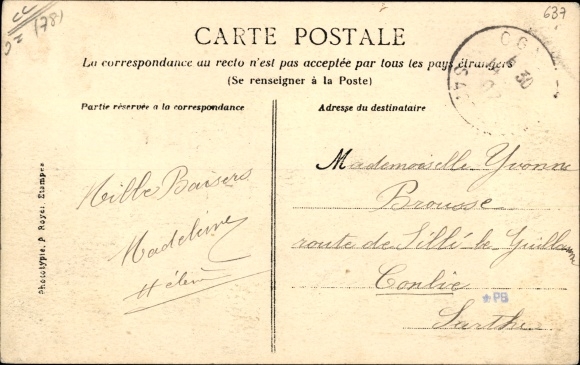 (78)
637
CARTE POSTALE
La correspondance au recto n'est pas acceptée par tous les pays étrangers
(Se renseigner à la Poste)
Partie réservée a la correspondance
Adresse du destinataire
Mille Baisers
Madeleine
Hélène
Mademoiselle Yvonne
Brousse
route de Sillé-le-Guillaume
Conlie
Sarthe
PB
Phototypie. P. Royer. Etampes
30